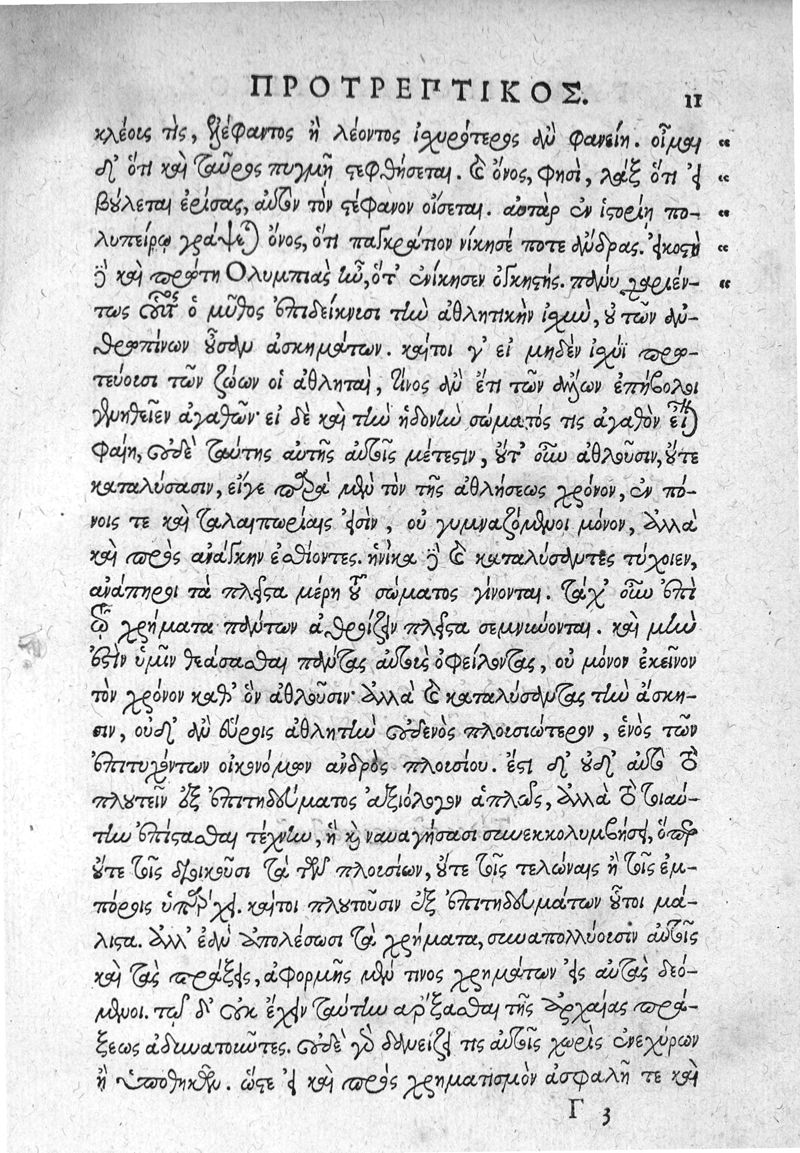 ΠΡΟΤΡΕΠΤΙΚΟΣ. 11
κλέους τὶς, ἐλέφαντος ἢ λέοντος ἰσχυρότερος ἂν φανείη. οἶμαι „
δ' ὅτι καὶ ταῦρος πυγμῇ στεφθήσεται. καὶ ὄνος, φησὶ, λὰξ ὅτι εἰ „
βούλεται ἐρίσας, αὐτὸν τὸν στέφανον οἴσεται. αὐτὰρ ἐν ἱστορίῃ πο- „
λυπείρῳ γράψεται ὄνος, ὅτι παγκράτιον νίκησέ ποτε ἄνδρας. εἰκοστὴ „
δὲ καὶ πρώτη Ολυμπιὰς ἦν, ὅτ' ἐνίκησεν ὀγκηστής. πάνυ χαριέν- „
τως οὗτος ὁ μῦθος ἐπιδείκνυσι τὴν ἀθλητικὴν ἰσχὺν, οὐ τῶν ἀν-
θρωπίνων οὖσαν ἀσκημάτων. καίτοι γ' εἰ μηδὲν ἰσχύϊ πρω-
τεύουσι τῶν ζώων οἱ ἀθληταὶ, τίνος ἂν ἔτι τῶν ἄλλων ἐπήβολοι
γενηθεῖεν ἀγαθῶν· εἰ δὲ καὶ τὴν ἡδονὴν σώματός τις ἀγαθὸν εἶναι
φαίη, οὐδὲ ταύτης αὐτῆς αὐτοῖς μέτεστιν, οὔτ' οὖν ἀθλοῦσιν, οὔτε
καταλύσασιν, εἴγε παρὰ μὲν τὸν τῆς ἀθλήσεως χρόνον, ἐν πό-
νοις τε καὶ ταλαιπωρίαις εἰσὶν, οὐ γυμναζόμενοι μόνον, ἀλλὰ
καὶ πρὸς ἀνάγκην ἐσθίοντες. ἡνίκα δὲ καὶ καταλύσαντες τύχοιεν,
ἀνάπηροι τὰ πλεῖστα μέρη τοῦ σώματος γίνονται. τάχ' οὖν ἐπὶ
τῷ χρήματα πάντων ἀθροίζειν πλεῖστα σεμνύονται. καὶ μὴν
ἔστιν ὑμῖν θεάσασθαι πάντας αὐτοὺς ὀφείλοντας, οὐ μόνον ἐκεῖνον
τὸν χρόνον καθ' ὃν ἀθλοῦσιν· ἀλλὰ καὶ καταλύσαντας τὴν ἄσκη-
σιν, οὐδ' ἂν εὕροις ἀθλητὴν οὐδενὸς πλουσιώτερον, ἑνὸς τῶν
ἐπιτυχόντων οἰκονόμων ἀνδρὸς πλουσίου. ἔστι δ' οὐδ' αὐτὸ τὸ
πλουτεῖν ἐξ ἐπιτηδεύματος ἀξιόλογον ἁπλῶς, ἀλλὰ τὸ τοιαύ-
την ἐπίστασθαι τέχνην, ἣ καὶ ναυαγήσασι συνεκκολυμβήσει, ὅπερ
οὔτε τοῖς διοικοῦσι τὰ τῶν πλουσίων, οὔτε τοῖς τελώναις ἢ τοῖς ἐμ-
πόροις ὑπάρχει. καίτοι πλουτοῦσιν ἐξ ἐπιτηδευμάτων οὗτοι μά-
λιστα. ἀλλ' ἐὰν ἀπολέσωσι τὰ χρήματα, συναπολλύουσιν αὐτοῖς
καὶ τὰς πράξεις, ἀφορμῆς μέν τινος χρημάτων εἰς αὐτὰς δεό-
μενοι. τῷ δ' οὐκ ἔχειν ταύτην ἄρξασθαι τῆς ἀρχαίας πρά-
ξεως ἀδυνατοῦντες. οὐδὲ γὰρ δανείζει τις αὐτοῖς χωρὶς ἐνεχύρων
ἢ ὑποθηκῶν. ὥστε εἰ καὶ πρὸς χρηματισμὸν ἀσφαλῆ τε καὶ
Γ 3